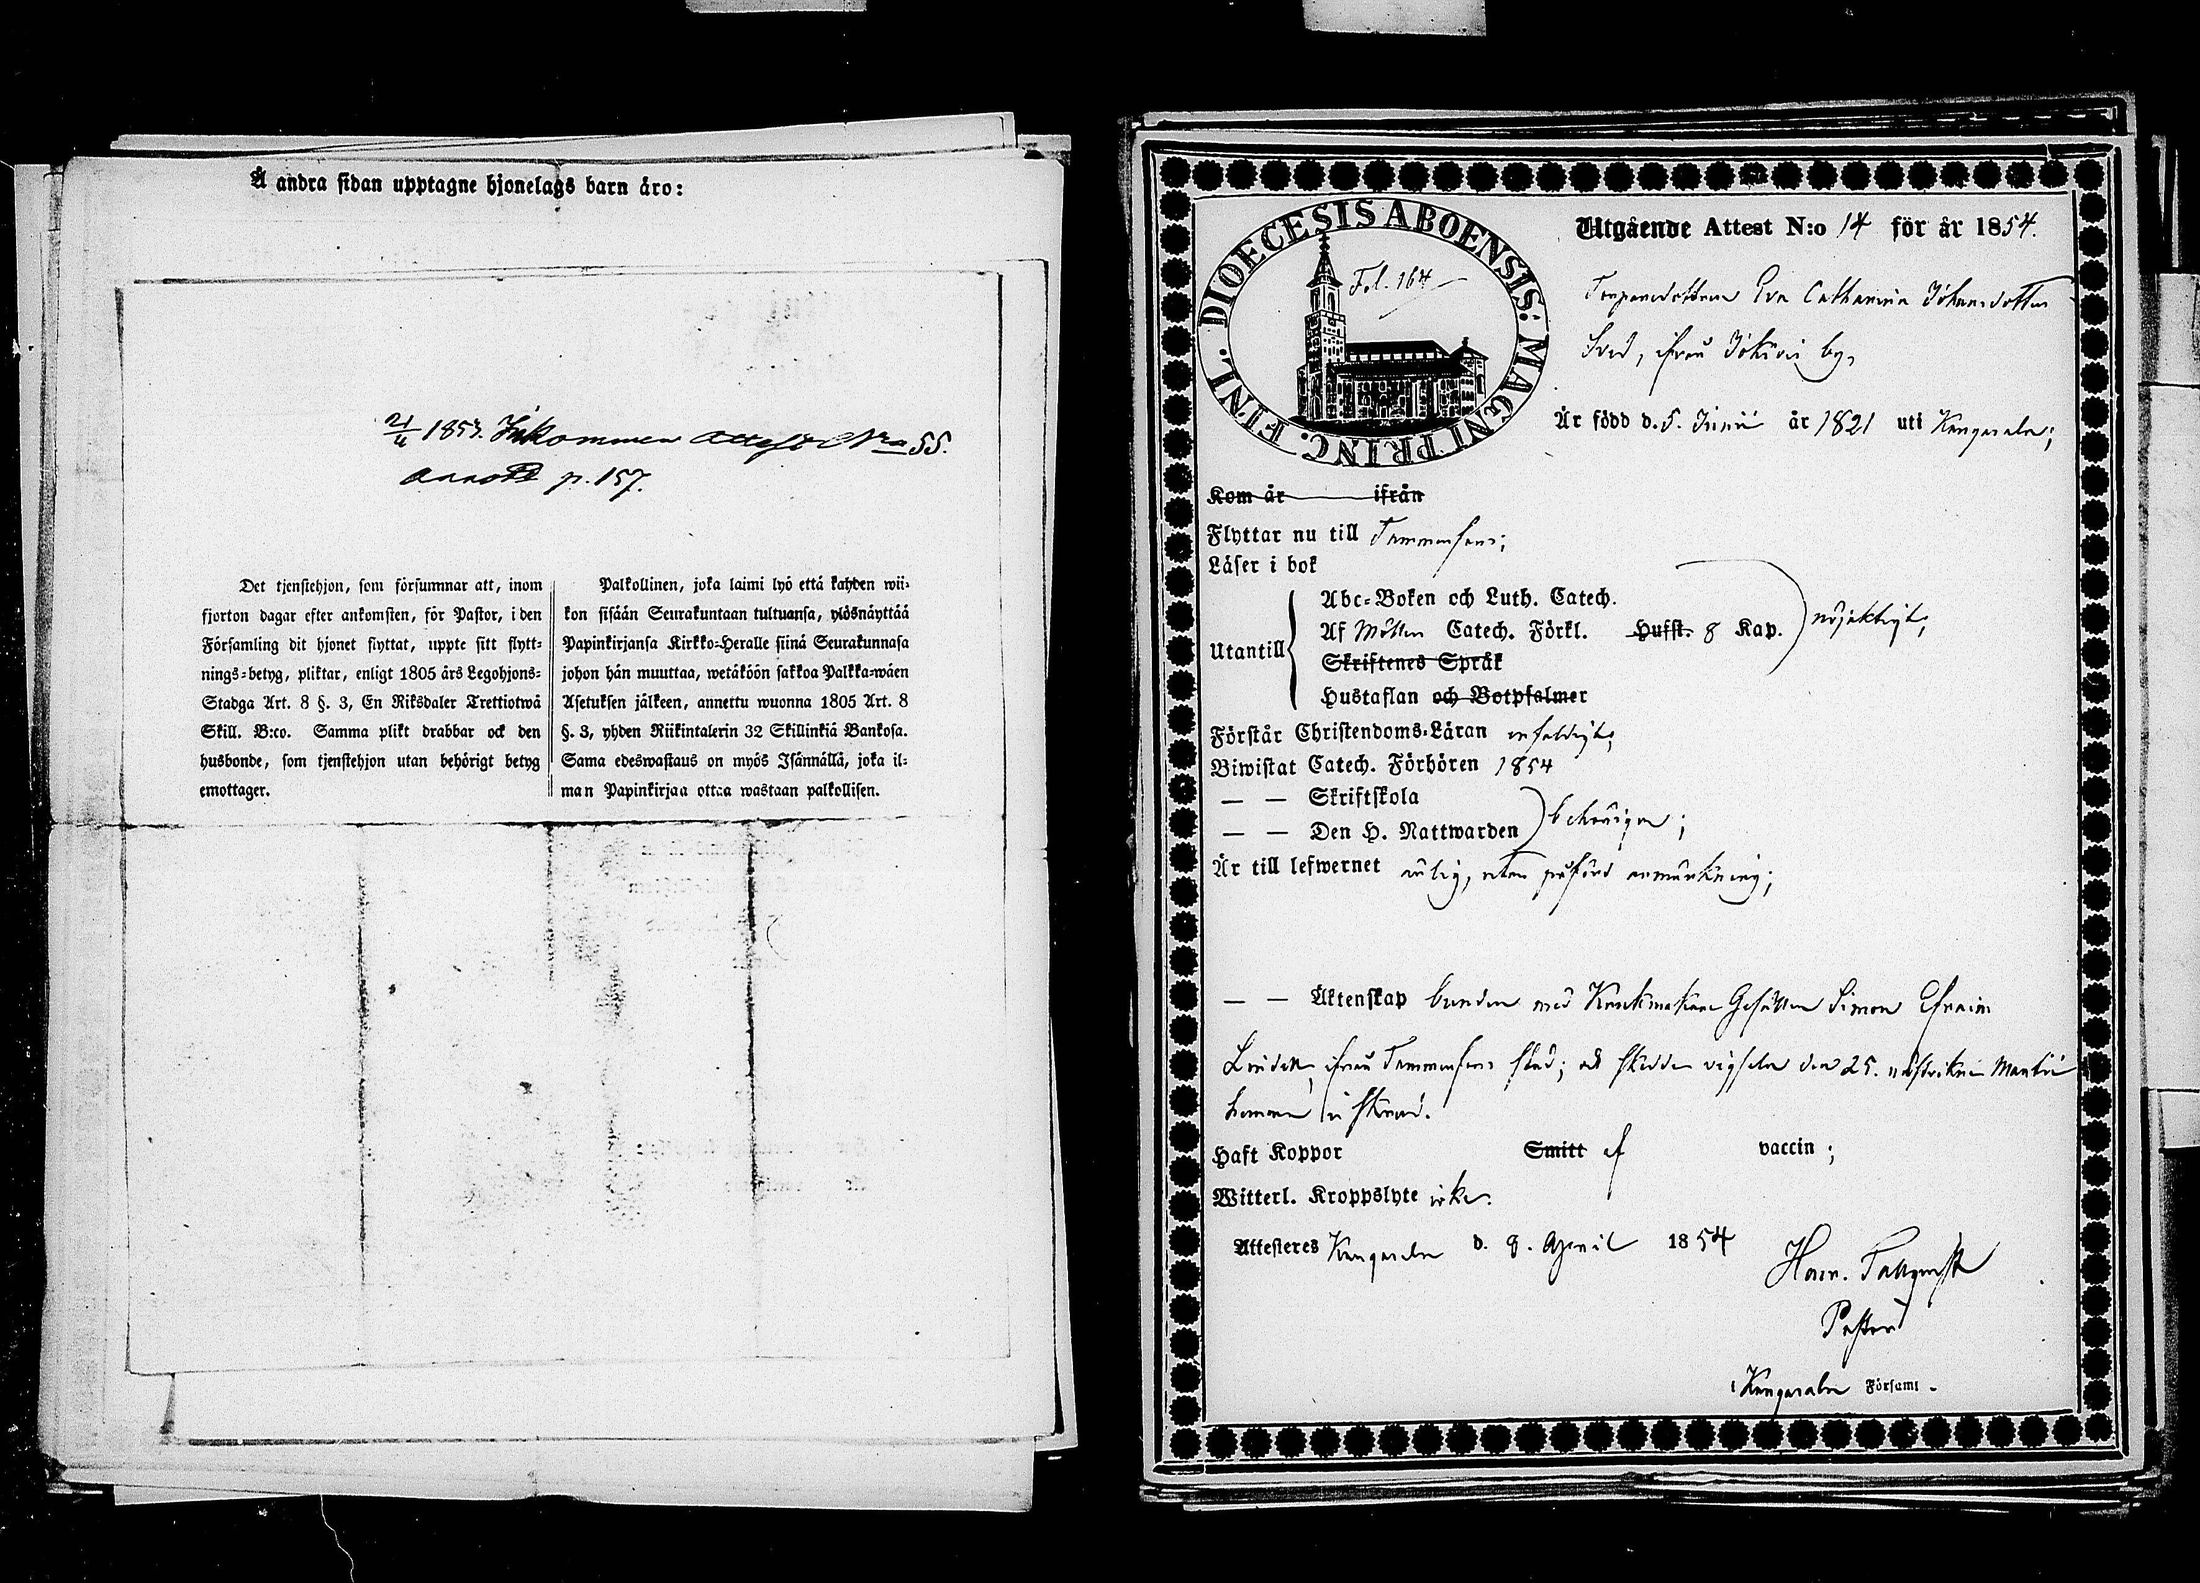 Å andra sidan upptagne hjonelags barn äro:
21/4 1853. Inkommen attest No 55.
Annotd p. 157.
Det tjenstehjon, som försummar att, inom
fjorton dagar efter ankomsten, för Pastor, i den
Församling dit hjonet flyttat, uppte sitt flytt-
nings-betyg, pliktar, enligt 1805 års Legohjons-
Stadga Art. 8 §. 3, En Riksdaler Trettiotwå
Skill. B:co. Samma plikt drabbar ock den
husbonde, som tjenstehjon utan behörigt betyg
emottager.
Palkollinen, joka laimi lyö että kahden wii-
kon sisään Seurakuntaan tultuansa, ylösnäyttää
Papinkirjansa Kirkko-Heralle siinä Seurakunnasa
johon hän muuttaa, wetäköön sakkoa Palkka-wäen
Asetuksen jälkeen, annettu wuonna 1805 Art. 8
§. 3, yhden Riikintalerin 32 Skillinkiä Bankosa.
Sama edeswastaus on myös Isännällä, joka il-
man Papinkirjaa ottaa wastaan palkollisen.
DIOECESIS ABOENSIS. MAGNI PRINC. FINL.
Fol. 164
Utgående Attest N:o 14 för år 1854.
Eva Catharina Johansdotter
ifrån by,
Är född d. 5. Junii år 1821 uti Kangasala;
Kom år ifrån
Flyttar nu till Tammerfors;
Läser i bok
Utantill
Abc-Boken och Luth. Catech.
Af Catech. Förkl. Hufst. 8 Kap. nöjaktigt;
Skriftenes Språk
Hustaflan och Botpsalmer
Förstår Christendoms-Läran enfaldigt;
Biwistat Catech. Förhören 1854
— — Skriftskola
— — Den H. Nattwarden behörigen;
Är till lefwernet ärlig, utan påförd anmärkning;
— — Äktenskap bunden med Gesällen Simon Efraim
Lindell, ifrån Tammerfors stad; och skedde vigseln den 25. Martii
Haft Koppor Smitt af vaccin;
Witterl. Kroppslyte icke.
Attesteres Kangasala d. 8. April 1854
Herm. Tallqvist
Pastor
i Kangasala Församl.